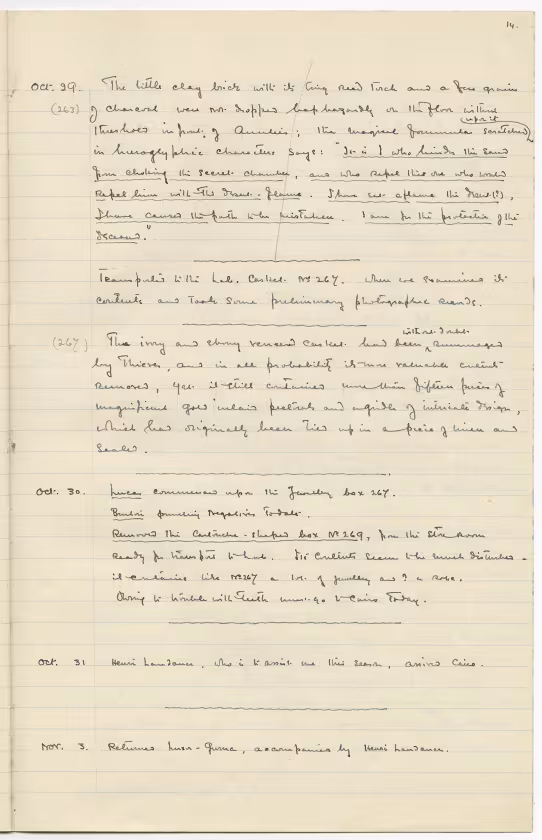 14.
Oct. 29. The little clay brick with its tiny reed torch and a few grains
(263) of charcoal were not dropped haphazardly on the floor within
upon it
threshold in front of Anubis; the magical formula scratched
in hieroglyphic characters says: "It is I who hinder the sand
from choking the secret chamber, and who repel that one who would
repel him with the desert-flame. I have set aflame the desert(?),
I have caused the path to be mistaken. I am for the protection of the
deceased."
Transported to the Lab. Casket. No 267. When we examined its
contents and took some preliminary photographic records.
without doubt
(267) The ivory and ebony veneered casket had been rummaged
by thieves, and in all probability its more valuable contents
removed, yet it still contained more than fifteen pieces of
magnificent gold inlaid pectorals and of intricate design,
which had originally been tied up in a piece of linen and
sealed.
Oct. 30. Lucas commenced upon the Jewellery box 267.
Burton printing negatives today.
Removed the Cartouche-shaped box No 269, from the Store Room
ready for transport to Lab. Its contents seem to be much disturbed -
it contains like No 267 a lot of jewellery and ? a robe.
Owing to trouble with teeth must go to Cairo today.
Oct. 31 Henri Landauer, who is to assist me this season, arrived Cairo.
Nov. 3. Returned Luxor-Gurna, accompanied by Henri Landauer.